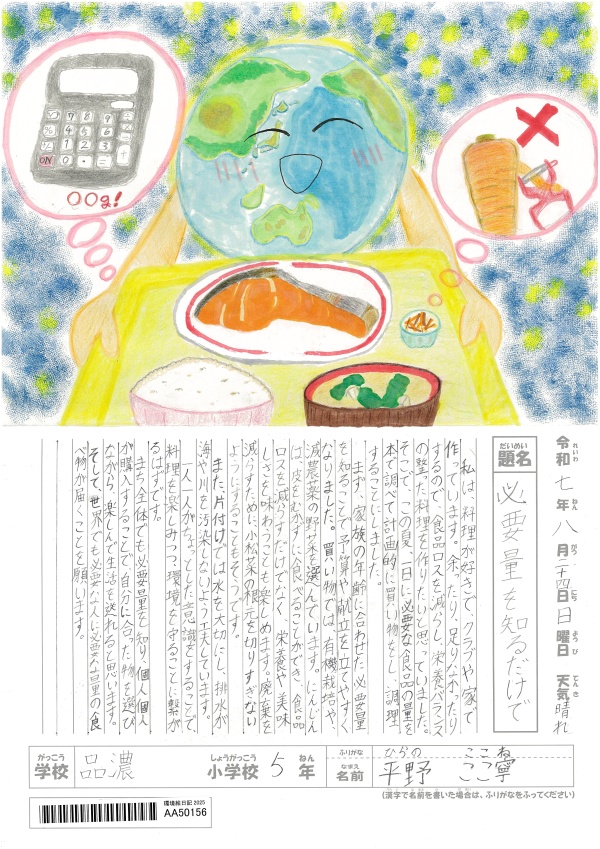 00g!
ON
令和七年八月二十四日日曜日 天気晴れ
れいわ ねん がつ にち ようび てんき
だいめい
題名 必要量を知るだけで
私は、料理が好きで、クラブや家で
作っています。余ったり、足りなかったり
するので、食品ロスを減らし、栄養バランス
の整った料理を作りたいと思っていました。
そこで、この夏、一日に必要な食品の量を
本で調べて計画的に買い物をし、調理
することにしました。
まず、家族の年齢に合わせた必要量
を知ることで予算や献立を立てやすく
なりました。買い物では、有機栽培や、
減農薬の野菜を選んでいます。にんじん
は、皮をむかずに食べることができ、食品
ロスを減らすだけでなく、栄養や美味
しさを味わうことも楽しめます。廃棄を
減らすために、小松菜の根元を切りすぎない
ようにすることもそうです。
また、片付けでは水を大切にし、排水が
海や川を汚染しないよう工夫しています。
一人一人がちょっとした意識をすることで、
料理を楽しみつつ、環境を守ることに繋が
るはずです。
まち全体でも必要量を知り、個人個人
が購入することで、自分に合った物を選び
ながら、楽しんで生活を送れると思います。
そして、世界でも必要な人に必要な量の食
べ物が届くことを願います。
がっこう しょうがっこう ねん ふりがな ひらの ここね
学校 品濃 小学校 5年 なまえ 名前 平野 ここ寧
(漢字で名前を書いた場合は、ふりがなをふってください)
環境絵日記 2025
AA50156